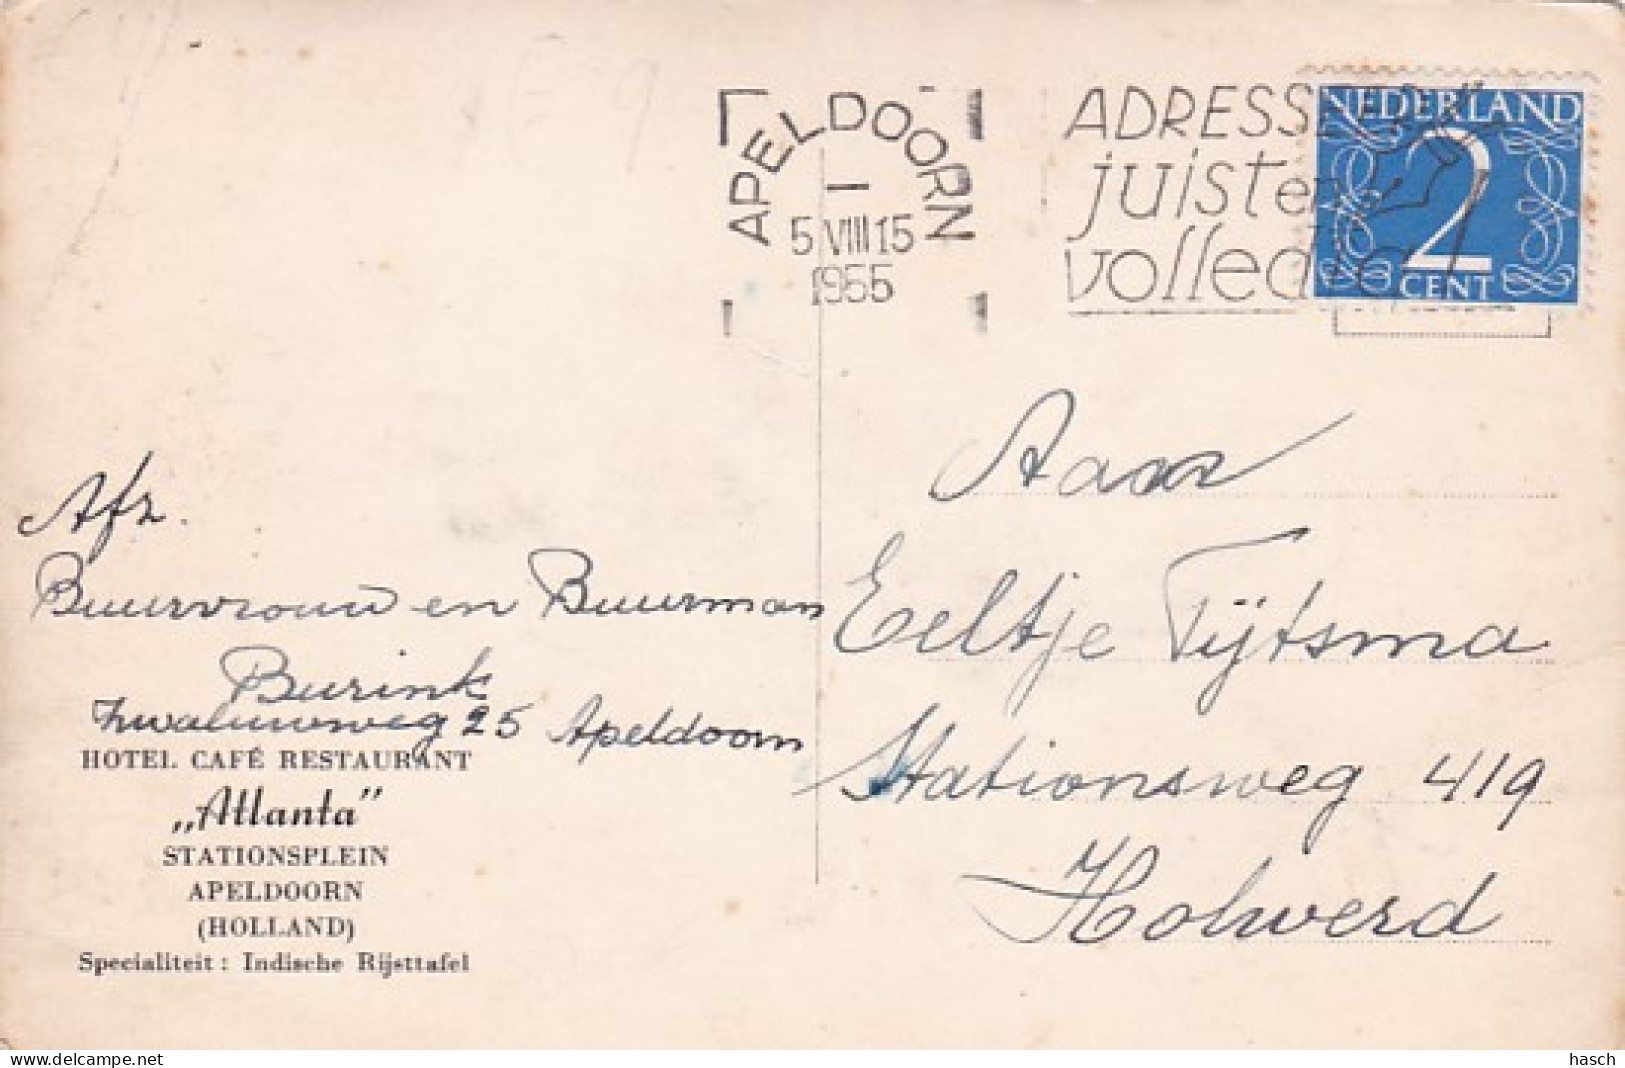 APELDOORN
1
5 VIII 15
1955
ADRESSE
juist en
volledig
NEDERLAND
2
CENT
Afz.
Buurvrouw en Buurman
Burink
Zwaluwweg 25 Apeldoorn
HOTEL CAFÉ RESTAURANT
„Atlanta”
STATIONSPLEIN
APELDOORN
(HOLLAND)
Specialiteit: Indische Rijsttafel
Aan
Eeltje Tijtsma
Stationsweg 419
Holwerd
delcampe.net
hasch